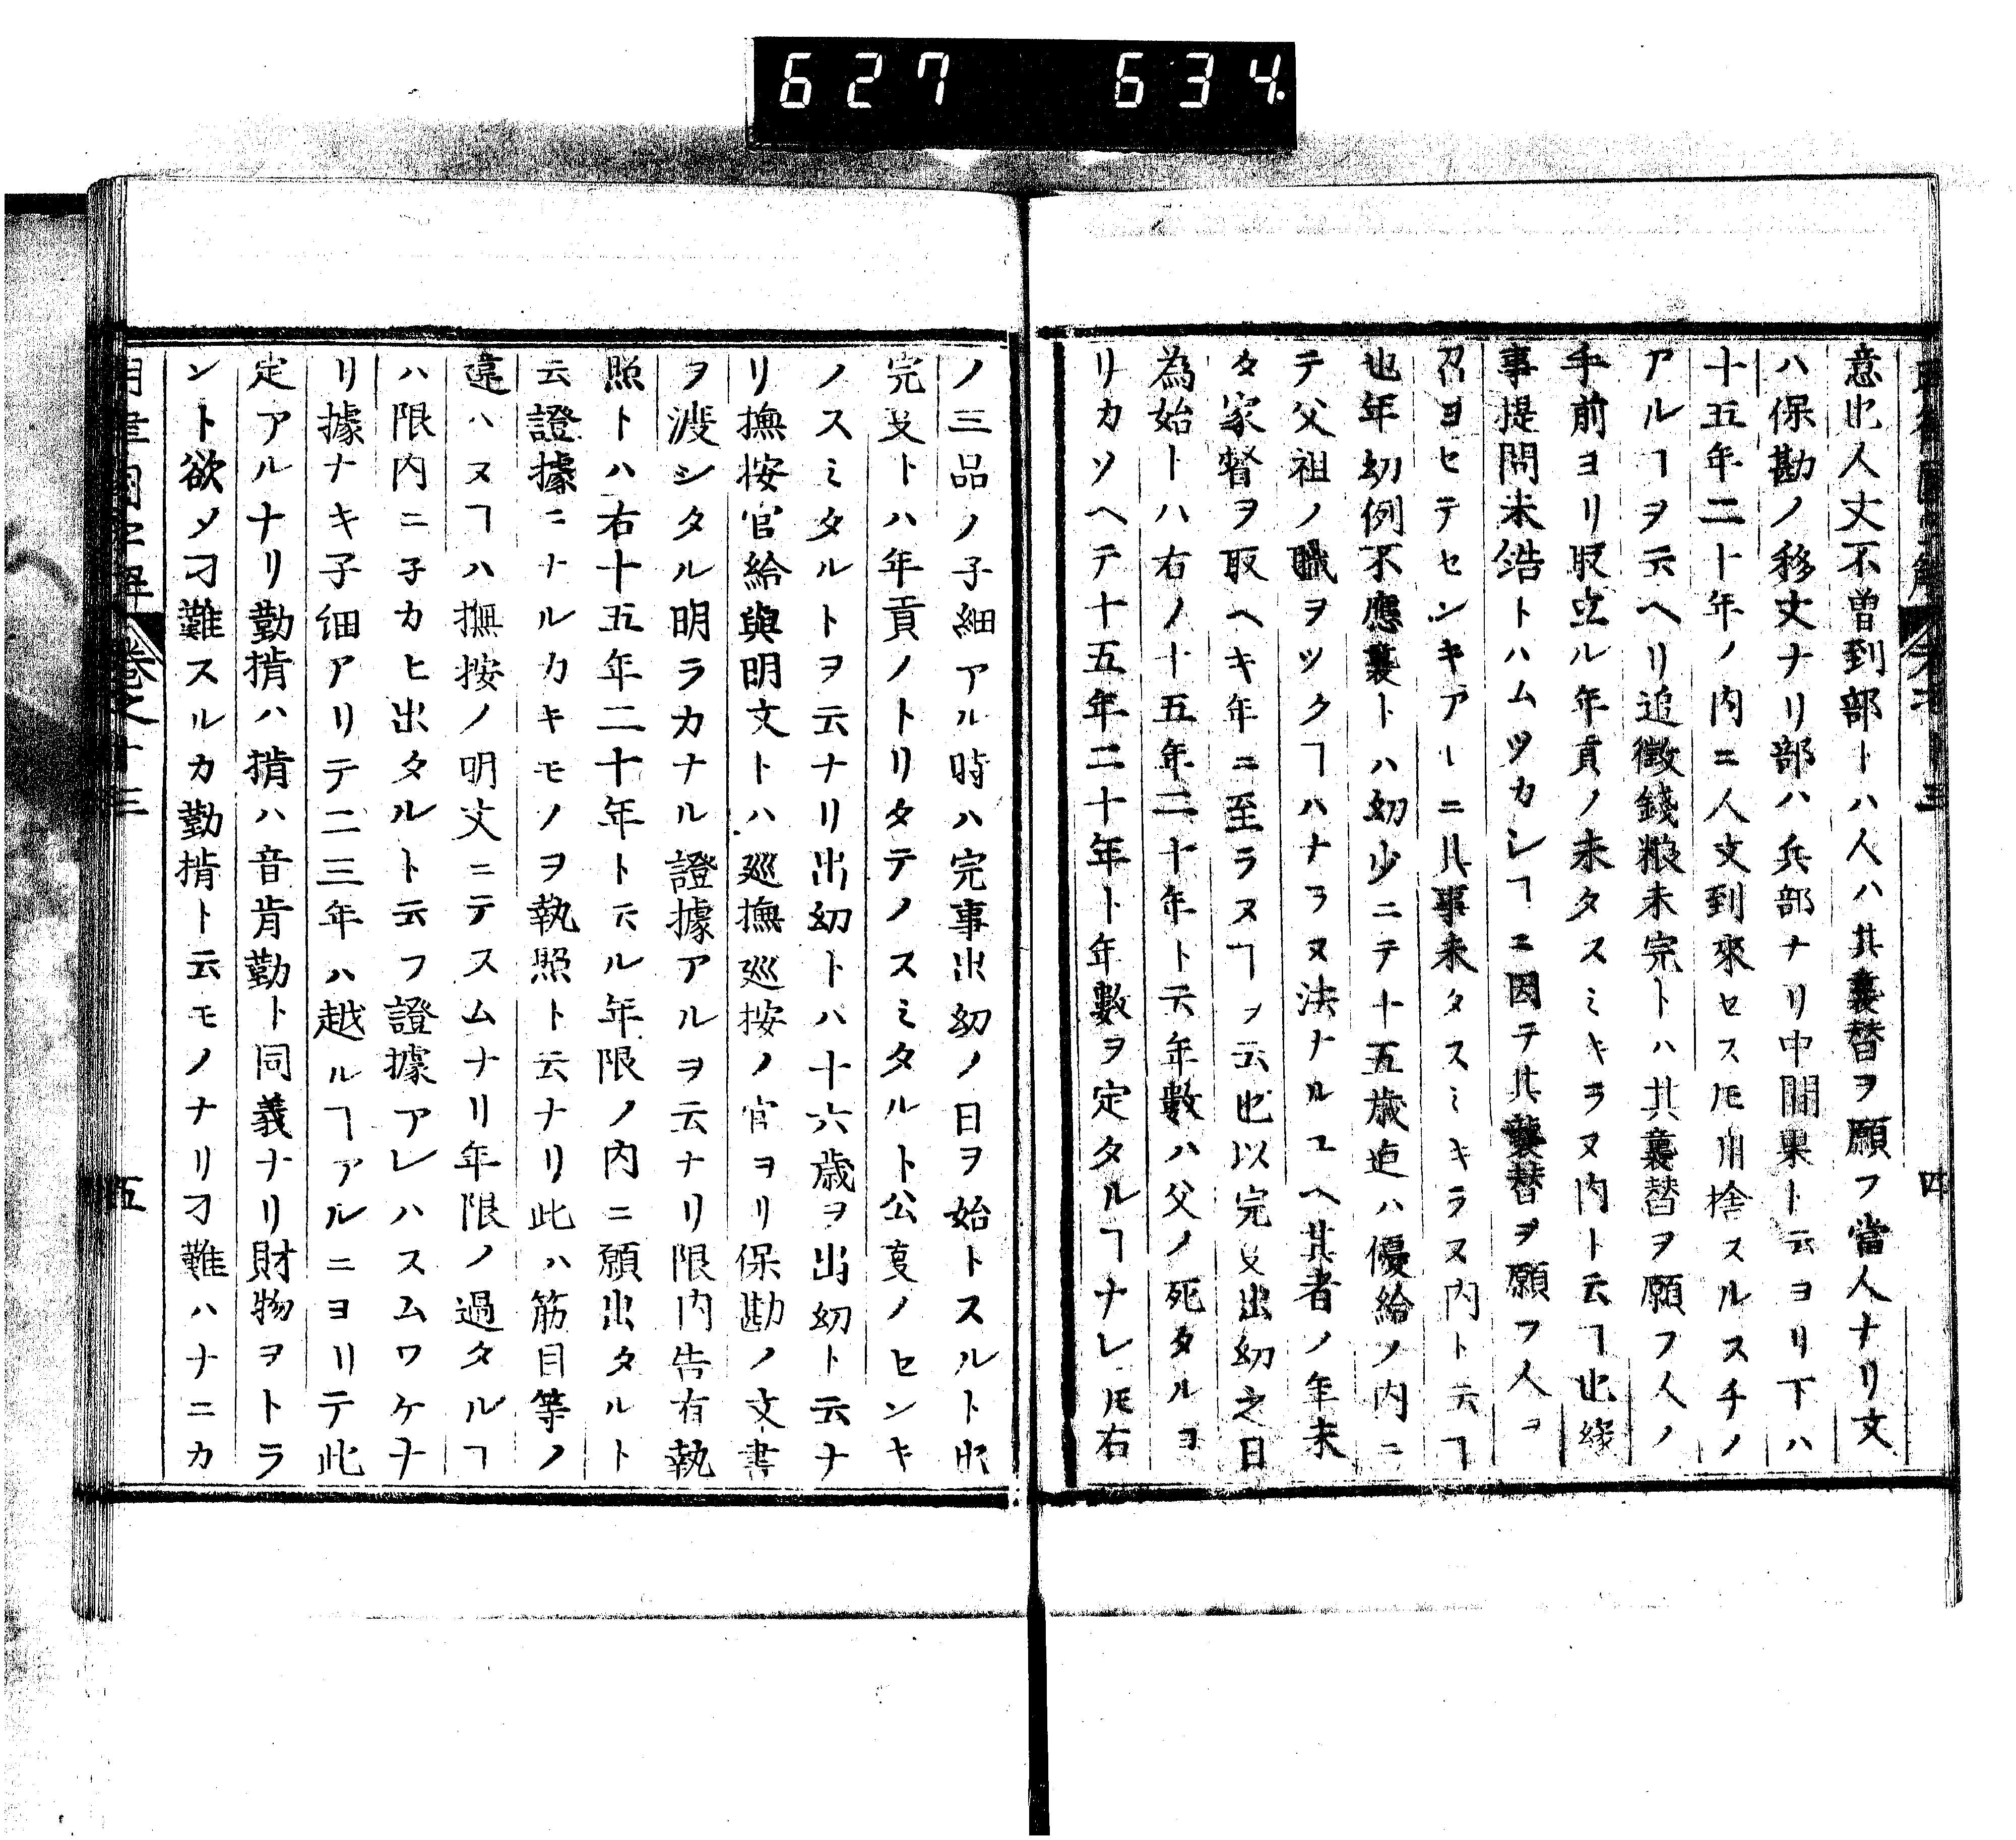 627 634
意也人文不曽到部トハ人ハ其襲替ヲ願フ當人ナリ文
ハ保勘ノ移文ナリ部ハ兵部ナリ中間果ト云ヨリ下ハ
十五年二十年ノ内ニ人文到來セス𪜈用捨スルスチノ
アルヿヲ云ヘリ追徴錢粮未完トハ其襲替ヲ願フ人ノ
手前ヨリ取立ル年貢ノ未タスミキラヌ内ト云ヿ也縁
事提問未結トハムツカシヿニ因テ其襲替ヲ願フ人ヲ
召ヨセテセンキアルニ其事未タスミキラヌ内ト云ヿ
也年幼例不應襲トハ幼少ニテ十五歳迠ハ優給ノ内ニ
テ父祖ノ職ヲツクヿハナラヌ法ナルユヘ其者ノ年未
タ家督ヲ取ヘキ年ニ至ラヌヿヲ云也以完㕝出幼之日
為始トハ右ノ十五年二十年ト云年數ハ父ノ死タルヨ
リカソヘテ十五年二十年ト年數ヲ定タルヿナレ𪜈右
ノ三品ノ子細アル時ハ完事出幼ノ日ヲ始トスルト也
完㕝トハ年貢ノトリタテノスミタルト公㕝ノセンキ
ノスミタルトヲ云ナリ出幼トハ十六歳ヲ出幼ト云ナ
リ撫按官給與明文トハ巡撫巡按ノ官ヨリ保勘ノ文書
ヲ渡シタル明ラカナル證據アルヲ云ナリ限内告有執
照トハ右十五年二十年ト云ル年限ノ内ニ願出タルト
云證據ニナルカキモノヲ執照ト云ナリ此ハ筋目等ノ
違ハヌヿハ撫按ノ明文ニテスムナリ年限ノ過タルヿ
ハ限内ニ子カヒ出タルト云フ證據アレハスムワケナ
リ據ナキ子細アリテ二三年ハ越ルヿアルニヨリテ此
定アルナリ勤掯ハ掯ハ音肯勤ト同義ナリ財物ヲトラ
ント欲メ刁難スルカ勤掯ト云モノナリ刁難ハナニカ
明律國字解 卷之十三 五